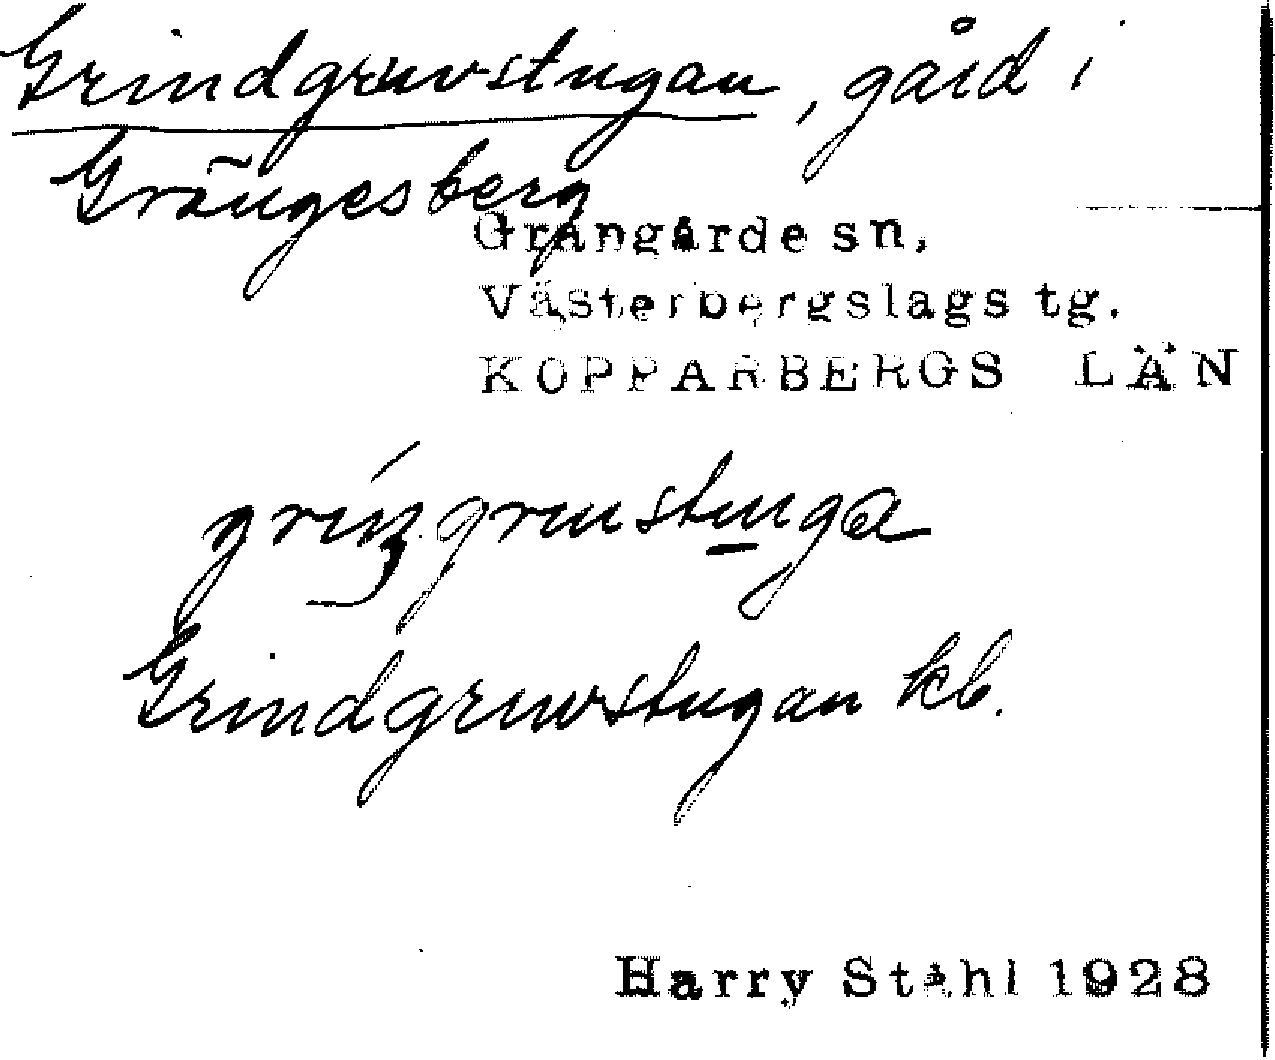 Grindgruvstugan, gård i
Grängesberg
Grangärde sn,
Västerbergslags tg.
KOPPARBERGS LÄN
Grindgruvstugan kb.
Harry Ståhl 1928